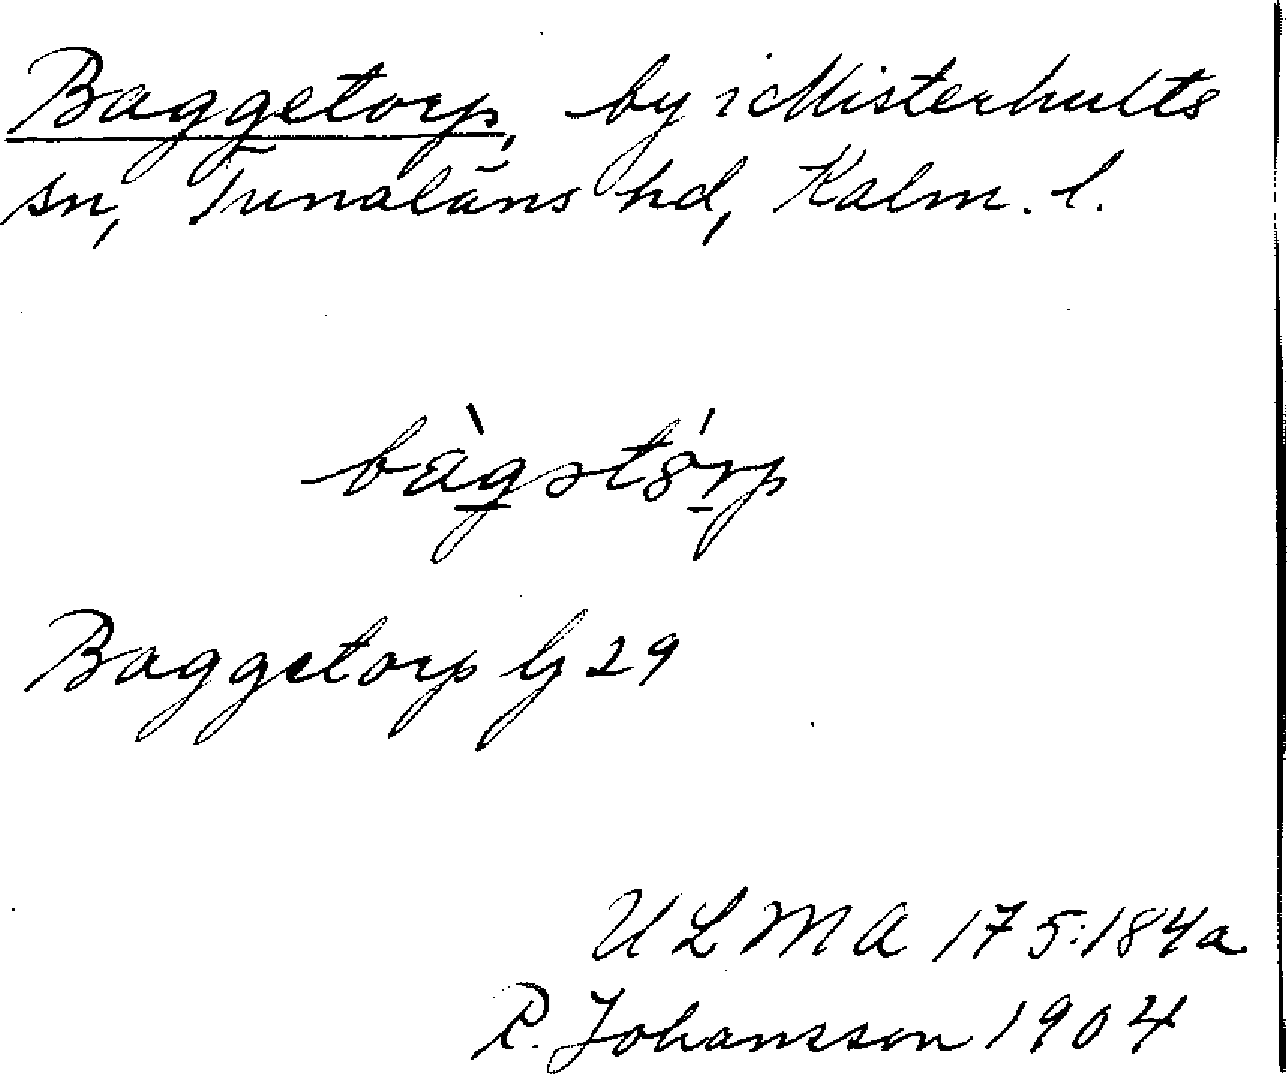 Baggetorp, by i Misterhults
sn, Tunaläns hd, Kalm. l.
bàgstórp
Baggetorp G 29
ULMA 175:184a
R. Johansson 1904